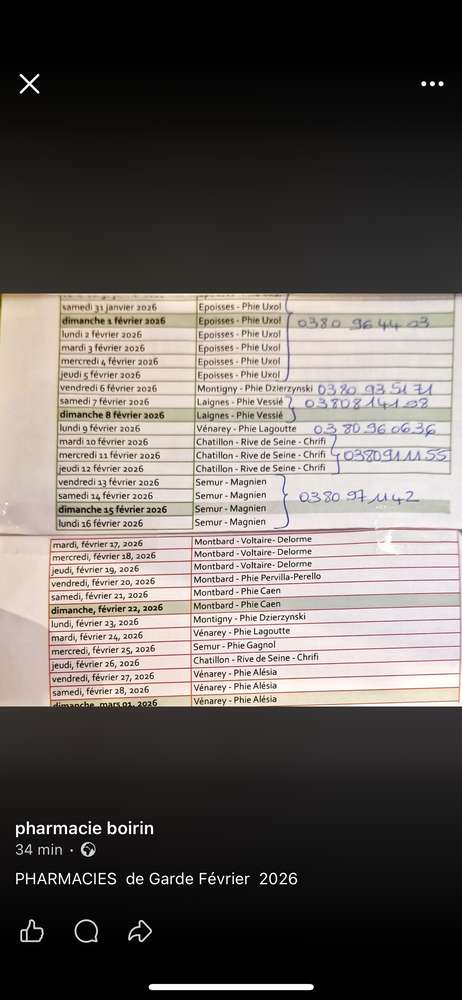 samedi 31 janvier 2026 Epoisses - Phie Uxol
dimanche 1 février 2026 Epoisses - Phie Uxol 0380 96 44 03
lundi 2 février 2026 Epoisses - Phie Uxol
mardi 3 février 2026 Epoisses - Phie Uxol
mercredi 4 février 2026 Epoisses - Phie Uxol
jeudi 5 février 2026 Epoisses - Phie Uxol
vendredi 6 février 2026 Montigny - Phie Dzierzynski 03 80 93 51 71
samedi 7 février 2026 Laignes - Phie Vessié
dimanche 8 février 2026 Laignes - Phie Vessié
lundi 9 février 2026 Vénarey - Phie Lagoutte 03 80 96 06 36
mardi 10 février 2026 Chatillon - Rive de Seine - Chrifi
mercredi 11 février 2026 Chatillon - Rive de Seine - Chrifi 0380911155
jeudi 12 février 2026 Chatillon - Rive de Seine - Chrifi
vendredi 13 février 2026 Semur - Magnien
samedi 14 février 2026 Semur - Magnien 0380 97 1142
dimanche 15 février 2026 Semur - Magnien
lundi 16 février 2026 Semur - Magnien
mardi, février 17, 2026 Montbard -Voltaire- Delorme
mercredi, février 18, 2026 Montbard -Voltaire- Delorme
jeudi, février 19, 2026 Montbard -Voltaire- Delorme
vendredi, février 20, 2026 Montbard - Phie Pervilla-Perello
samedi, février 21, 2026 Montbard - Phie Caen
dimanche, février 22, 2026 Montbard - Phie Caen
lundi, février 23, 2026 Montigny - Phie Dzierzynski
mardi, février 24, 2026 Vénarey - Phie Lagoutte
mercredi, février 25, 2026 Semur - Phie Gagnol
jeudi, février 26, 2026 Chatillon - Rive de Seine - Chrifi
vendredi, février 27, 2026 Vénarey - Phie Alésia
samedi, février 28, 2026 Vénarey - Phie Alésia
dimanche, mars 01, 2026 Vénarey - Phie Alésia
pharmacie boirin
34 min ·
PHARMACIES de Garde Février 2026